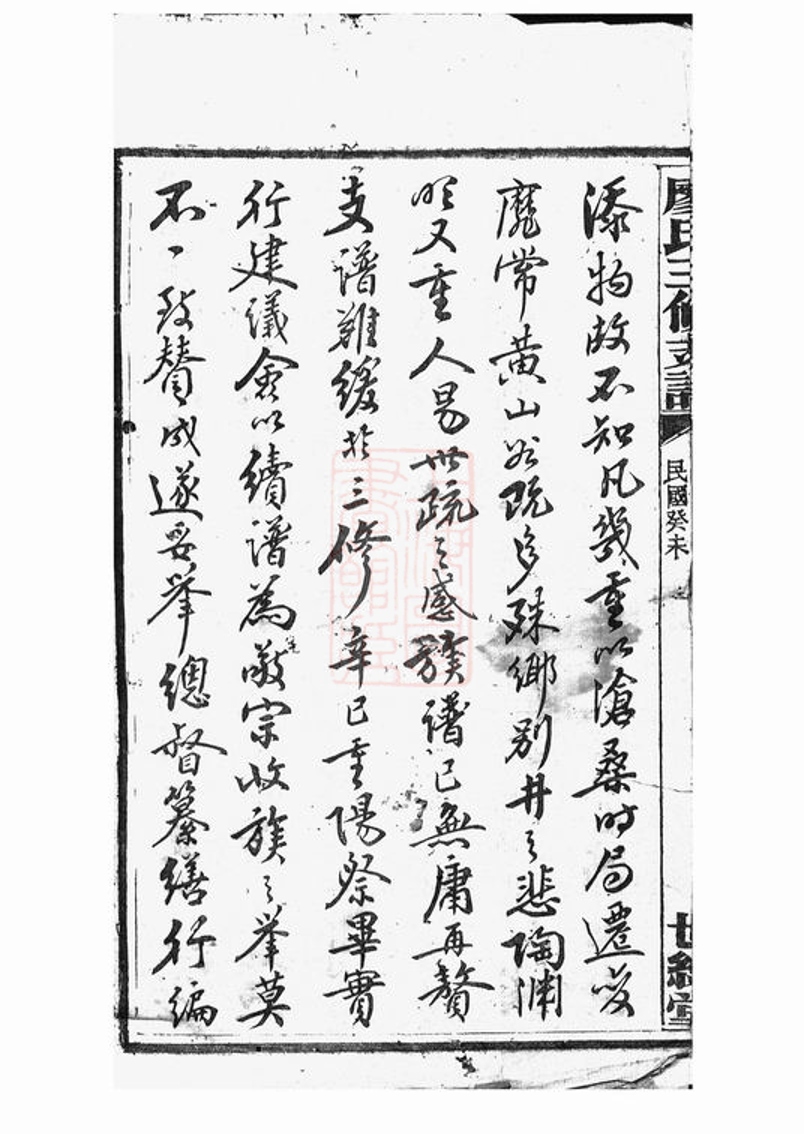 廖氏三修支譜 民國癸未 世綵堂
添物故不知凡幾重以滄桑時局遷變
靡常黃山谷既多殊鄉別井之悲陶淵
明又重人易世疏之感族譜已無庸再贅
支譜難緩於三修辛巳重陽祭畢實
行建議僉以續譜為敬宗收族之舉莫
不一致贊成遂妥舉總督纂繕行編